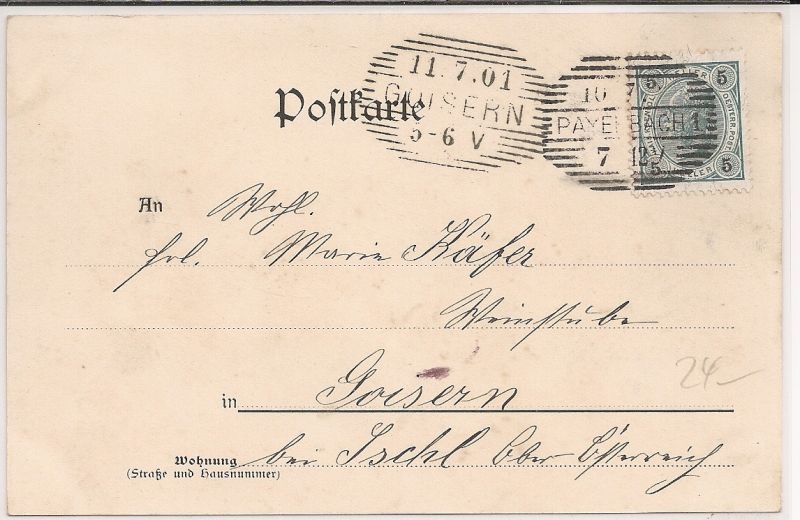 Postkarte
11.7.01
GOISERN
5-6 V
10 7
PAYERBACH 1
7 12V
5 5
5 5
An Wohl.
Frl. Marie Käfer
Weinstube
in Goisern
24-
Wohnung bei Ischl Ober Österreich
(Straße und Hausnummer)